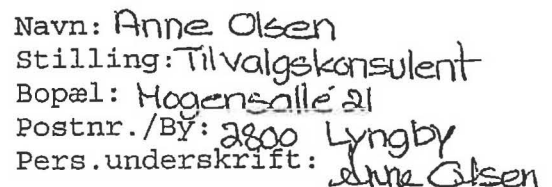 Navn: Anne Olsen
Stilling: Tilvalgskonsulent
Bopæl: Mogensallé 21
Postnr./By: 2800 Lyngby
Pers.underskrift: Anne Olsen